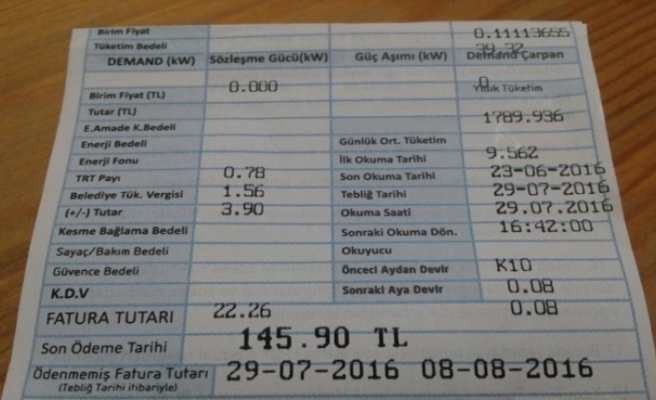 Birim Fiyat 0.11113655
Tüketim Bedeli 39.32
DEMAND (kW) Sözleşme Gücü(kW) Güç Aşımı (kW) Demand Çarpan
0.000 0
Birim Fiyat (TL) Yıllık Tüketim
Tutar (TL) 1789.936
E.Amade K.Bedeli
Enerji Bedeli Günlük Ort. Tüketim 9.562
Enerji Fonu İlk Okuma Tarihi 23-06-2016
TRT Payı 0.78 Son Okuma Tarihi 29-07-2016
Belediye Tük. Vergisi 1.56 Tebliğ Tarihi 29.07.2016
(+/-) Tutar 3.90 Okuma Saati 16:42:00
Kesme Bağlama Bedeli Sonraki Okuma Dön.
Sayaç/Bakım Bedeli Okuyucu K10
Güvence Bedeli Önceci Aydan Devir 0.08
K.D.V 22.26 Sonraki Aya Devir 0.08
FATURA TUTARI 145.90 TL
Son Ödeme Tarihi 29-07-2016 08-08-2016
Ödenmemiş Fatura Tutarı
(Tebliğ Tarihi itibariyle)